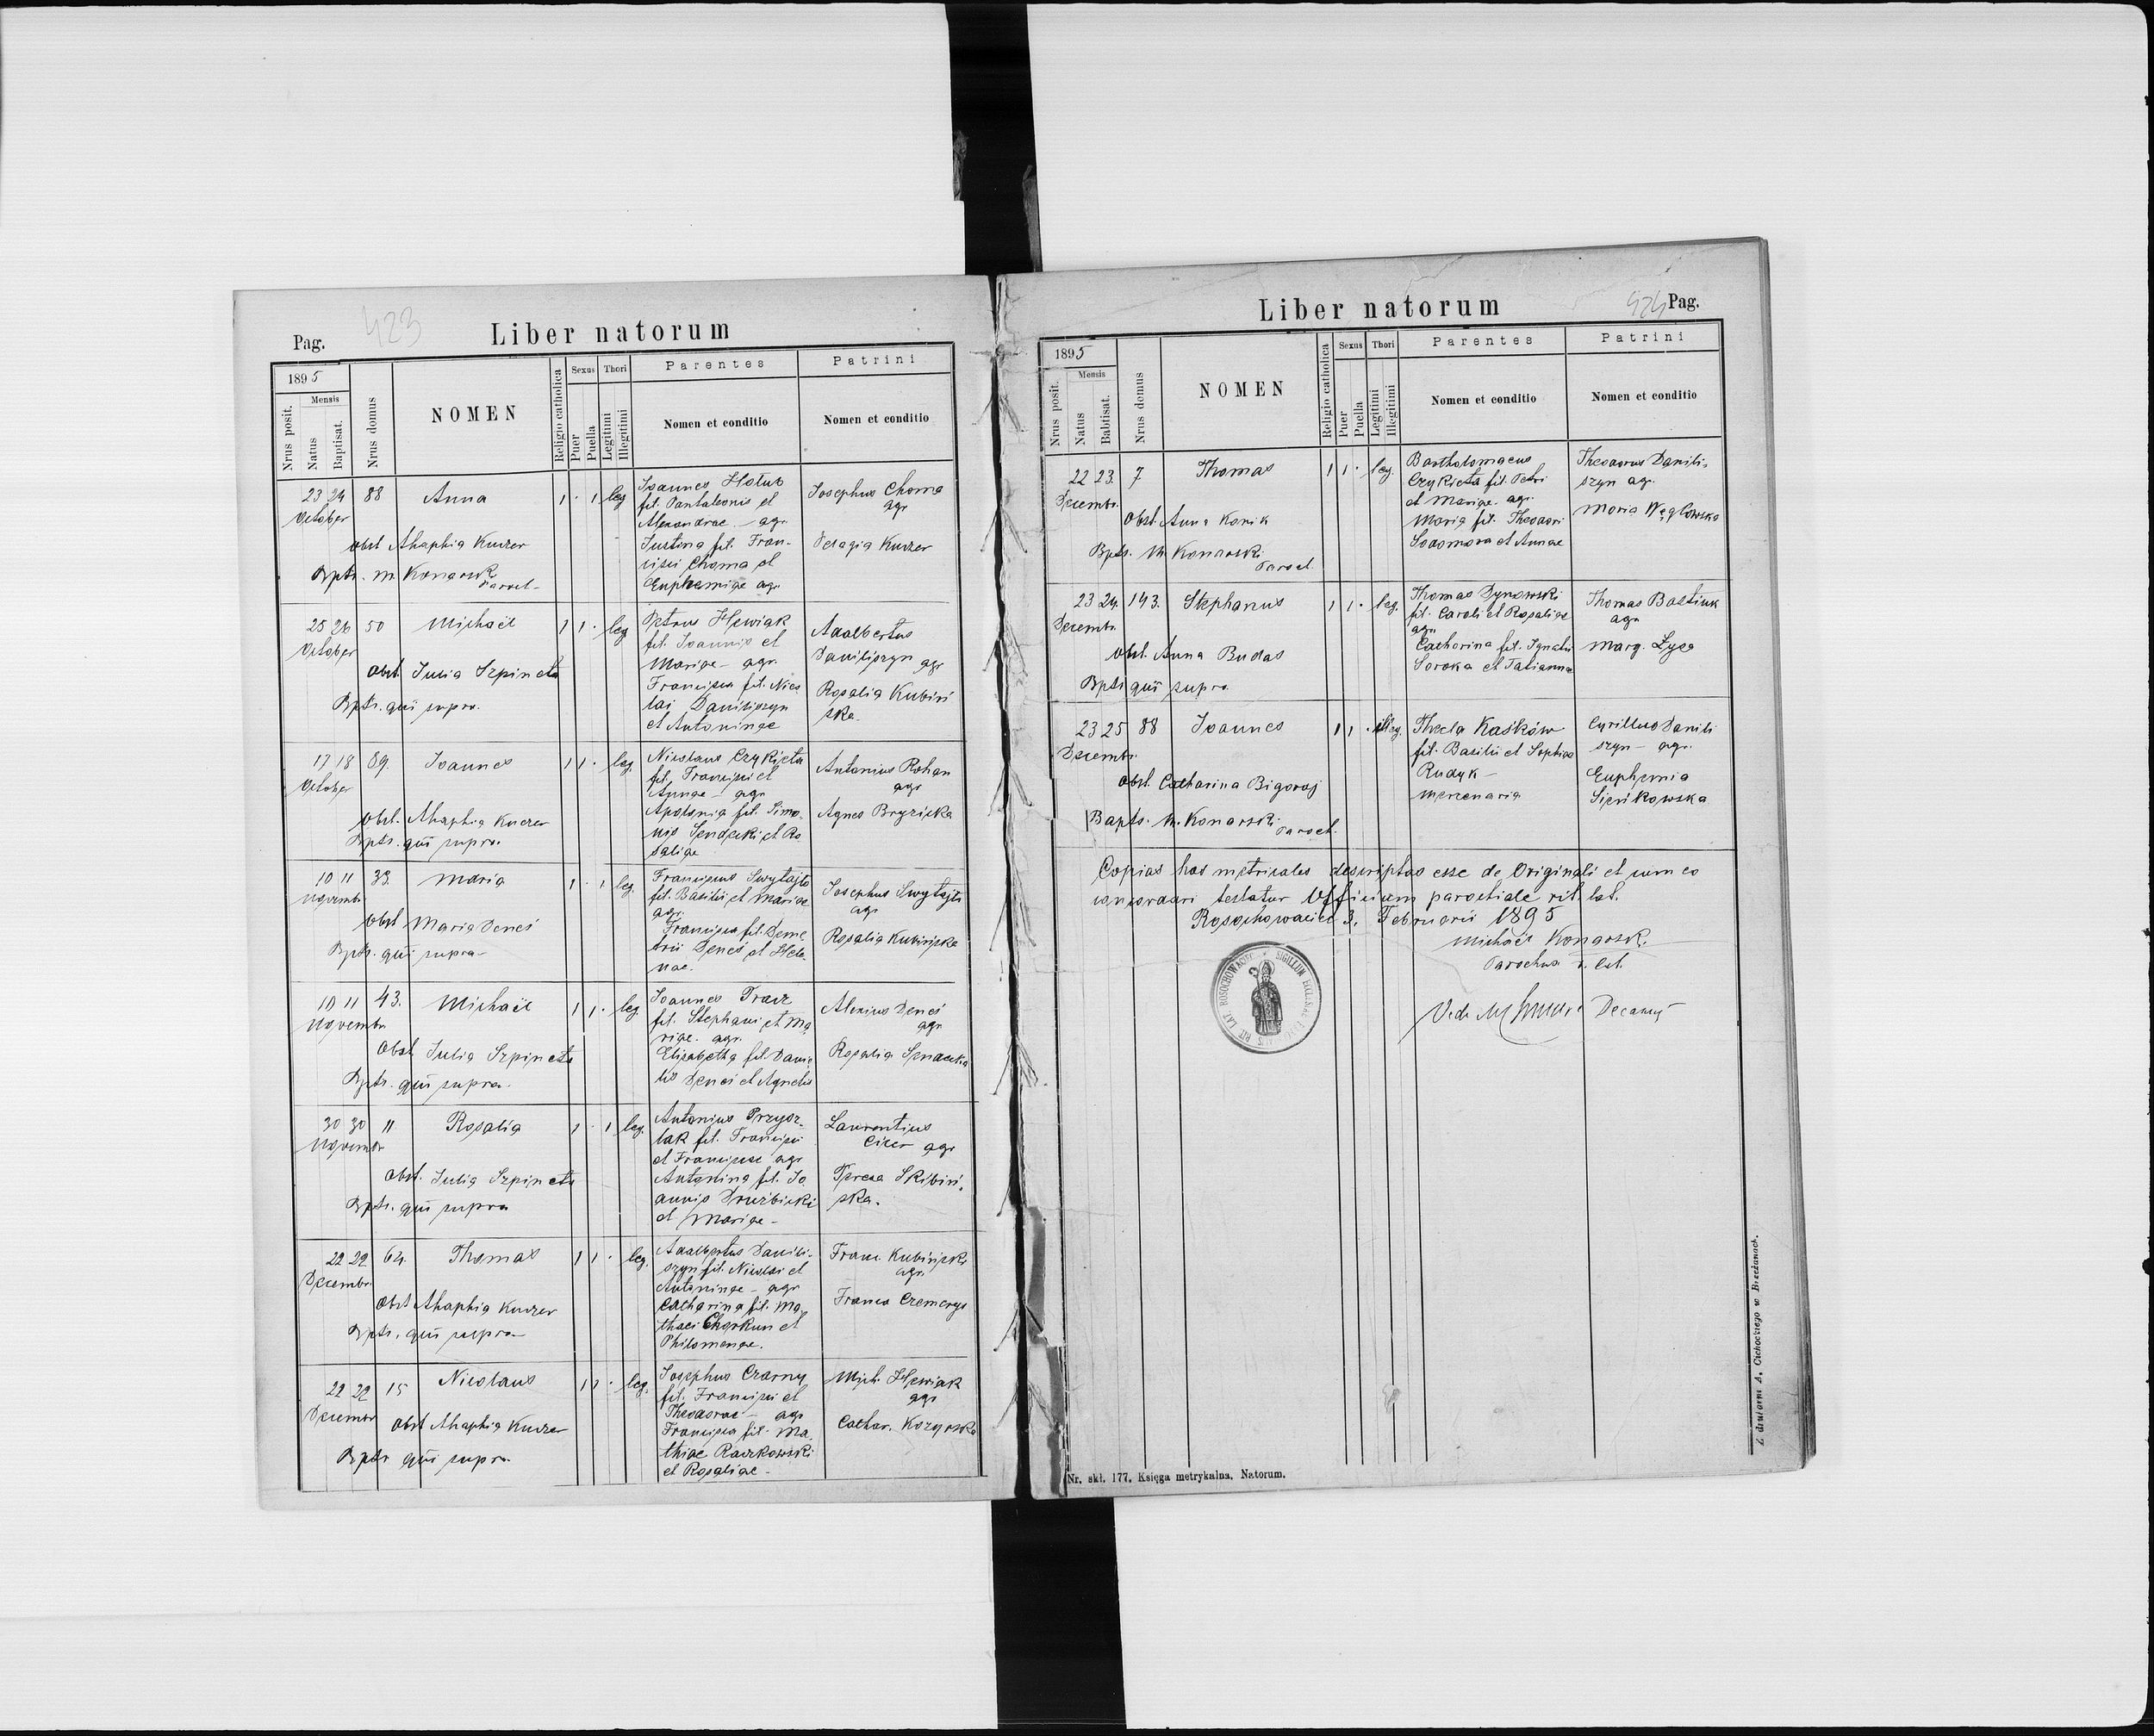 Pag. 423
Liber natorum
1895
Nrus posit.
Mensis
Natus
Baptisat.
Nrus domus
NOMEN
Religio catholica
Sexus
Puer
Puella
Thori
Legitimi
Illegitimi
Parentes
Nomen et conditio
Patrini
Nomen et conditio
23 24 88 Anna 1 · 1 leg
October
obst Ahaphia Kuczer
Bpts. M. Konarski
Paroch.
Joannes Hołub
fil. Pantaleonis et
Alexandrae – agr.
Justina fil. Fran-
cisci Choma et
Euphemiae agr.
Josephus Choma
agr
Pelagia Kuczer
25 26 50 Michael 1 1 · leg
October
obst. Julia Szpineta
Bpts. qui supra.
Petrus Hewiak
fil. Joannis et
Mariae – agr.
Francisca fil. Nico
lai Daniliszyn
et Antoninae
Adalbertus
Daniliszyn agr
Rosalia Kubiń
ska.
17 18 89. Joannes 1 1 · leg.
October
obst. Ahaphia Kuczer
Bpts. qui supra.
Nicolaus Czykieta
fil. Francisci et
Annae – agr
Apolonia fil. Simo-
nis Sendecki et Ro
saliae
Antonius Rohan
agr
Agnes Bryzicka
10 11 39. Maria 1 · 1 leg.
Novembr.
obst Maria Deneś
Bpts. qui supra –
Franciscus Swytajło
fil. Basilii et Mariae
agr.
Francisca fil. Deme
trii Deneś et Hele-
nae.
Josephus Swytajło
agr
Rosalia Kubińska
10 11 43. Michael 1 1 · leg.
Novembr.
Obst Julia Szpineta
Bpts. qui supra.
Joannes Tracz
fil. Stephani et Ma
riae. agr.
Elizabetha fil. Danie
lis Deneś et Agnetis
Alexius Deneś
agr
Rosalia Sendecka
30 30 11 Rosalia 1 · 1 leg.
Novembr
obst. Julia Szpineta
Bpts. qui supra
Antonius
fil. Francisci
et Franciscae agr
Antonina fil. Jo
annis Drużbicki
et Mariae –
Laurentius
Cicer agr
Teresa Skibiń-
ska.
22 22 64. Thomas 1 1 · leg.
Decembr.
obst Ahaphia Kuczer
Bpts. qui supra –
Adalbertus Danili-
szyn fil. Nicolai et
Antoninae – agr
Catharina fil. Ma
thaei et
Philomenae.
Franc. Kubiński
agr.
Franca Czemerys
22 22 15 Nicolaus 1 1 · leg.
Decembr
obst Ahaphia Kuczer
Bpts qui supra.
Josephus Czarny
fil. Francisci et
Theodorae – agr
Francisca fil. Ma-
thiae Raczkowski
et Rosaliae –
Mich. Hewiak
agr
Cathar.
Liber natorum
424 Pag.
1895
Nrus posit.
Mensis
Natus
Babtisat.
Nrus domus
NOMEN
Religio catholica
Sexus
Puer
Puella
Thori
Legitimi
Illegitimi
Parentes
Nomen et conditio
Patrini
Nomen et conditio
22 23 7 Thomas 1 1 · leg.
Decembr.
Obst. Anna Konik
Bpts. M. Konarski
Paroch.
Bartholomaeus
Czykieta fil. Petri
et Mariae. agr.
Maria fil. Theodori
Sodomora et Annae
Theodorus Danili-
szyn agr.
Maria Węglowska
23 24. 143. Stephanus 1 1 · leg.
Decembr.
obst. Anna Budas
Bpts qui supra.
Thomas Dynowski
fil. Caroli et Rosaliae
agr.
Catharina fil. Ignatii
Soroka et Tatianna
Thomas Bastiuk
agr
Marg. Łysa
23 25 88 Joannes 1 1 · illeg.
Decembr.
obst. Catharina Bigoraj
Bapts. M. Konarski
Paroch.
Thecla Kaśków
fil. Basilii et Sophiae
Rudyk –
mercenaria
Cyrillus Danili
szyn – agr.
Euphemia
Sieńkowska
Copias has metricales descriptas esse de Originali et cum eo
concordari testatur Officium parochiale rit. lat.
Rosochowaciec 3. Februarii 1895
Michael Konarski
Parochus r. lat.
SIGILLUM ECCLESIAE RIT. LAT. ROSOCHOWACII
Vidi Decanus
Nr. skł. 177. Księga metrykalna, Natorum.
Z drukarni A. Cichockiego w Brzeżanach.